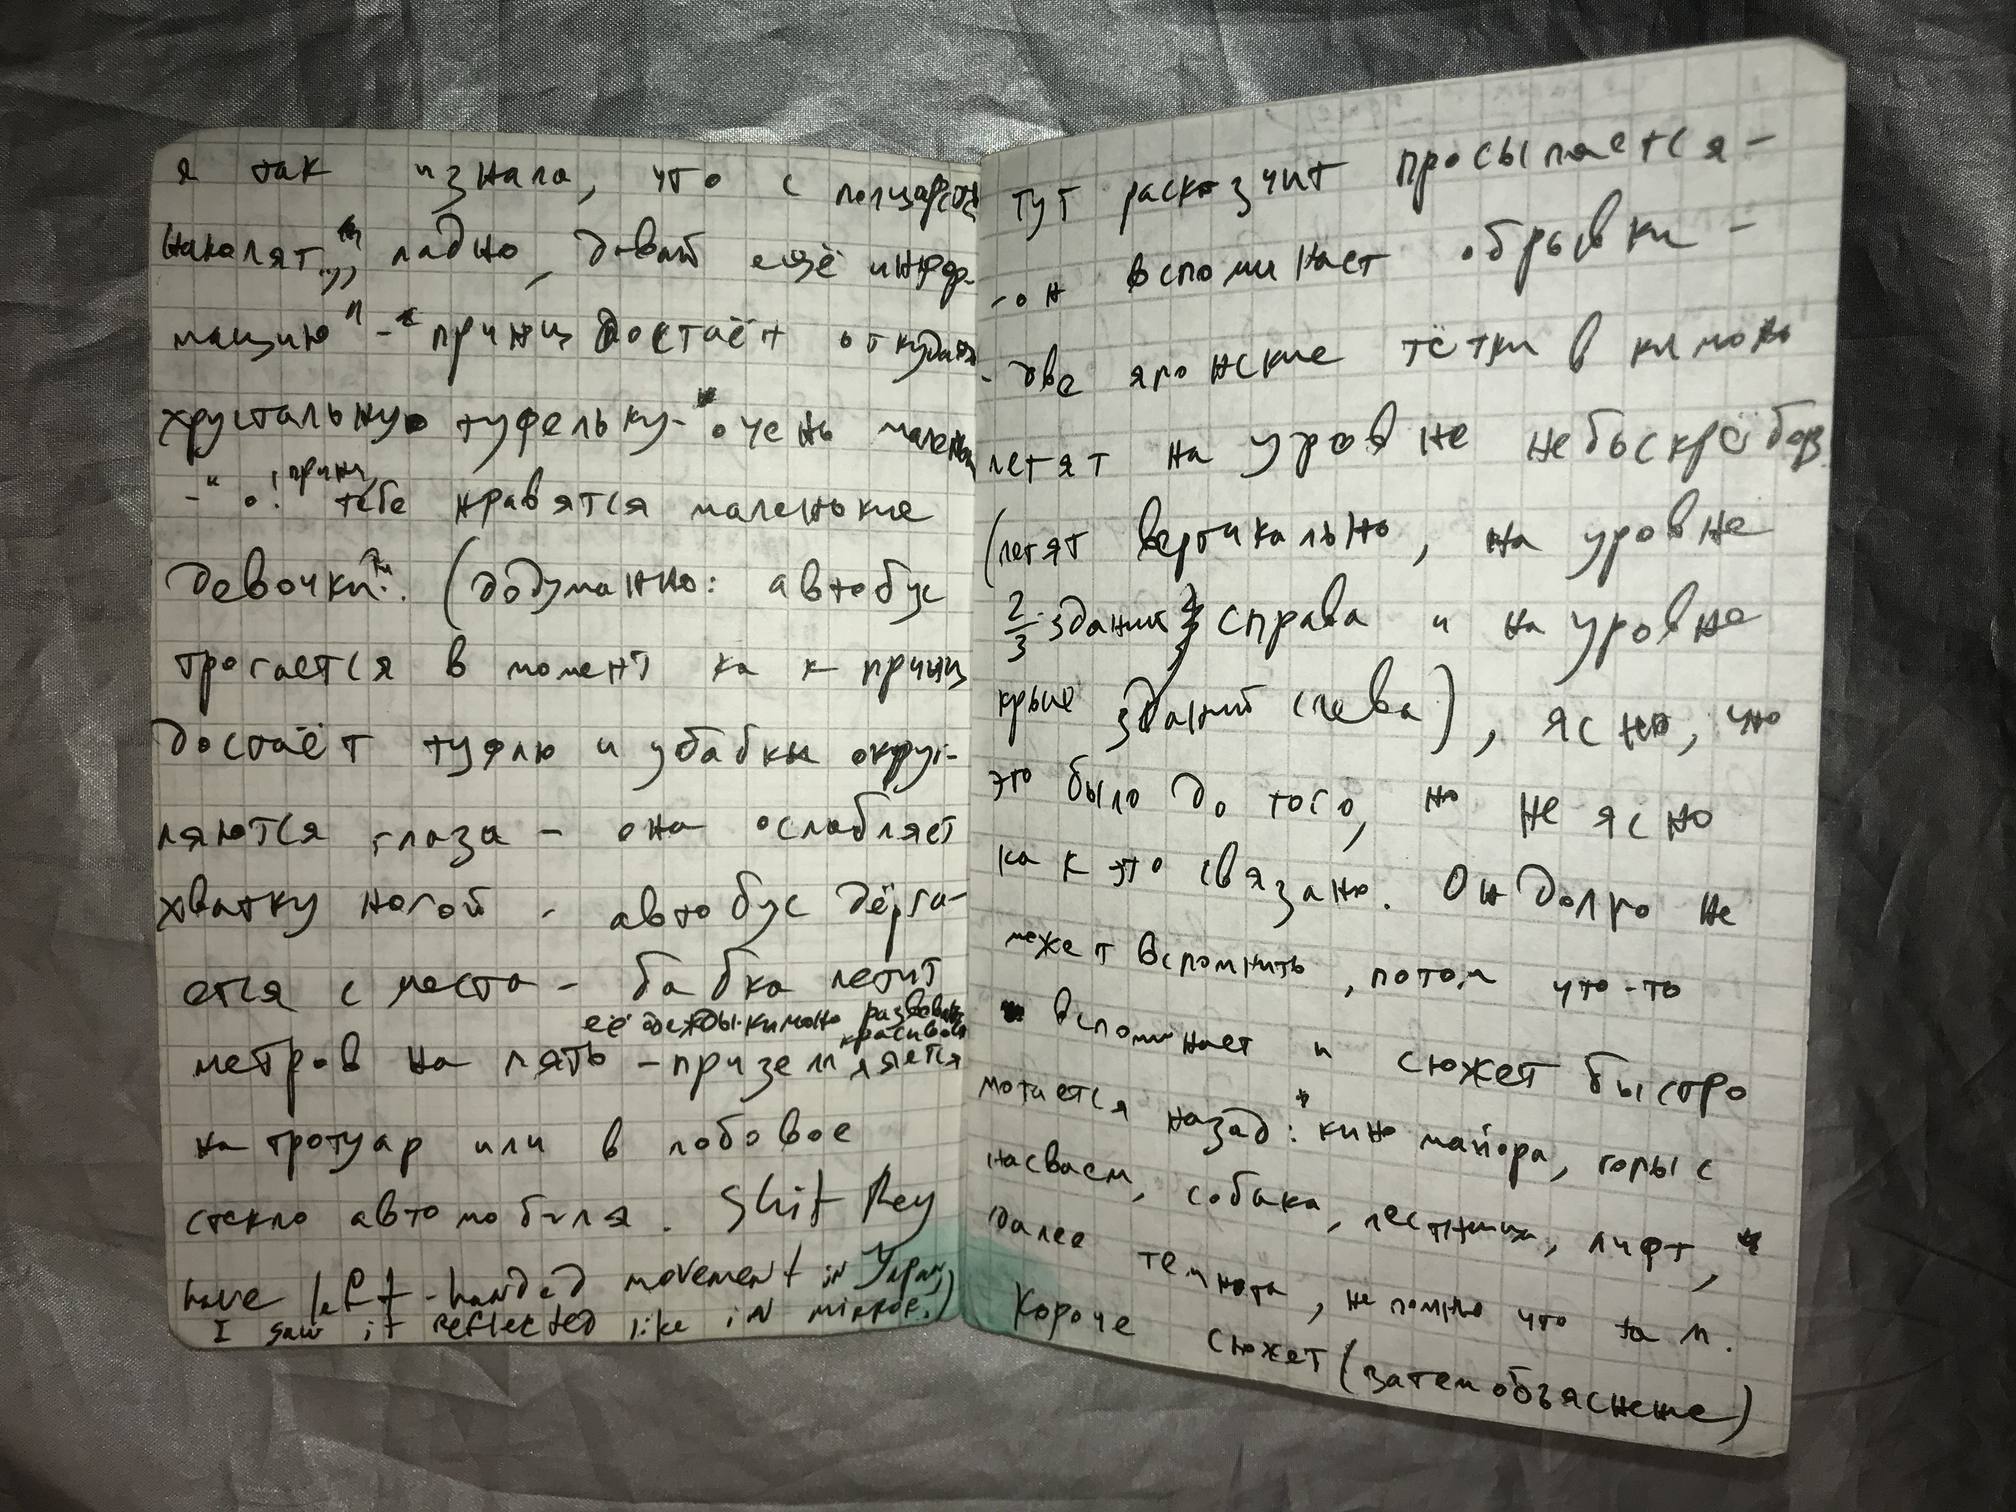 я так и знала, что с полцарства
наколят", "ладно, давай ещё инфор-
мацию" - принц достаёт откуда-то
хрустальную туфельку - "очень маленькая
- "о! принц, тебе нравятся маленькие
девочки". (додуманно: автобус
трогается в момент как принц
достаёт туфлю и у бабки округ-
ляются глаза - она ослабляет
хватку ногой - автобус дёрга-
ется с места - бабка летит
её одежды-кимоно красиво
метров на пять - приземляется
на тротуар или в лобовое
стекло автомобиля. Shit they
have left-handed movement in Japan,
I saw it reflected like in mirror.)
тут расказчит просыпается -
- он вспоминает обрывки -
- две японские тётки в кимоно
летят на уровне небоскрёбов
(летят вертикально, на уровне
2/3 зданий справа и на уровне
крыш зданий слева), ясно, что
это было до того, но не ясно
как это связано. Он долго не
может вспомнить, потом что-то
вспоминает и сюжет быстро
мотается назад: кино майора, горы с
насваем, собака, лестница, лифт,
далее темнота, не помню что там.
Короче сюжет (затем объяснение)